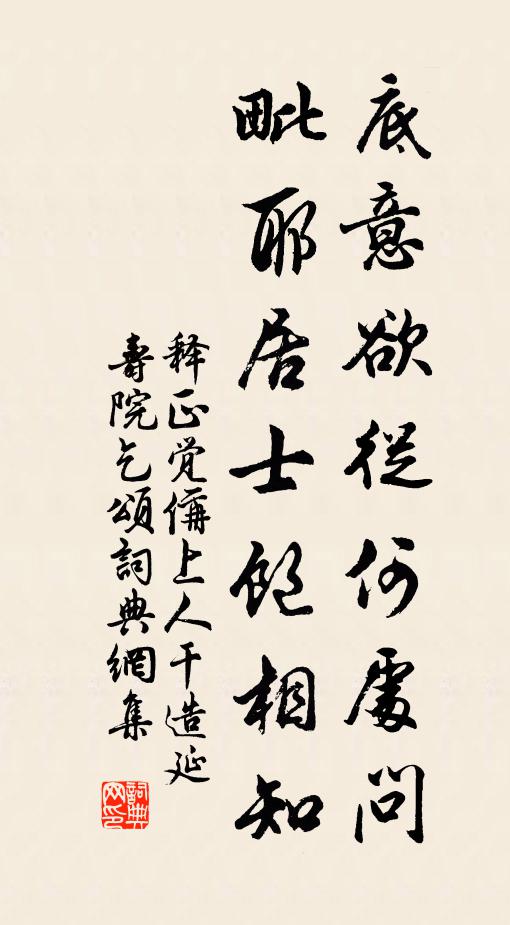 底意欲從何處問
毗耶居士飽相知
释正觉俻上人干造延
壽院乞頌詞典網集
詞典网印